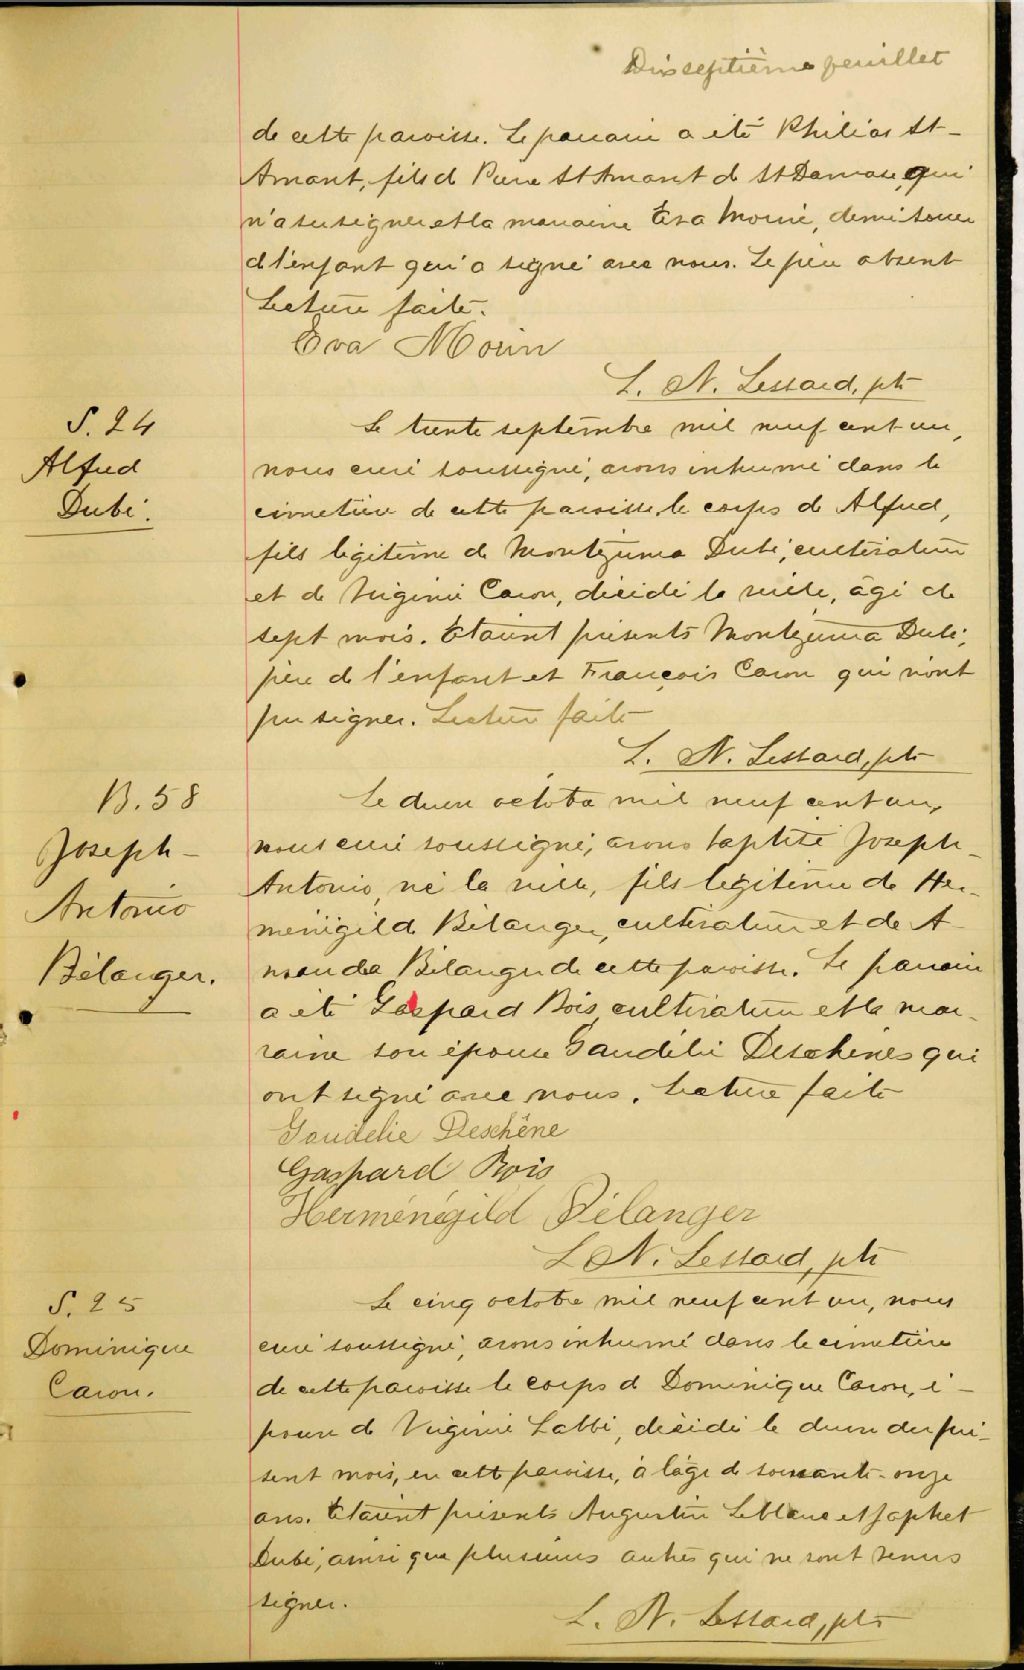 Dixseptième feuillet
de cette paroisse. Le parrain a été Philias St-
Amant, fils de Pierre St Amant de St Damase, qui
n'a su signer et la marraine Eva Morin, demi soeur
de l'enfant qui a signé avec nous. Le père absent
Lecture faite.
Eva Morin
L. N. Lessard, ptr
S. 24
Alfred
Dubé.
Le trente septembre mil neuf cent un,
nous curé soussigné, avons inhumé dans le
cimetière de cette paroisse le corps de Alfred,
fils légitime de Montézuma Dubé, cultivateur
et de Virginie Caron, décédé la veille, âgé de
sept mois. Etaient présents Montézuma Dubé,
père de l'enfant et François Caron qui n'ont
pu signer. Lecture faite
L. N. Lessard, ptr
B. 58
Joseph-
Antonio
Bélanger.
Le deux octobre mil neuf cent un,
nous curé soussigné, avons baptisé Joseph-
Antonio, né la veille, fils légitime de Her-
ménégild Bélanger, cultivateur et de A-
manda Bélanger de cette paroisse. Le parrain
a été Gaspard Bois, cultivateur et la mar-
raine son épouse Gaudélie Deschênes qui
ont signé avec nous. Lecture faite
Gaudelie Deschêne
Gaspard Bois
Herménégild Bélanger
L. N. Lessard, ptr
S. 25
Dominique
Caron.
Le cinq octobre mil neuf cent un, nous
curé soussigné, avons inhumé dans le cimetière
de cette paroisse le corps de Dominique Caron, é-
poux de Virginie Labbé, décédé le deux du pré-
sent mois, en cette paroisse, à l'âge de soixante-onze
ans. Etaient présents Augustin Leblanc et Japhet
Dubé, ainsi que plusieurs autres qui ne sont venus
signer.
L. N. Lessard, ptr